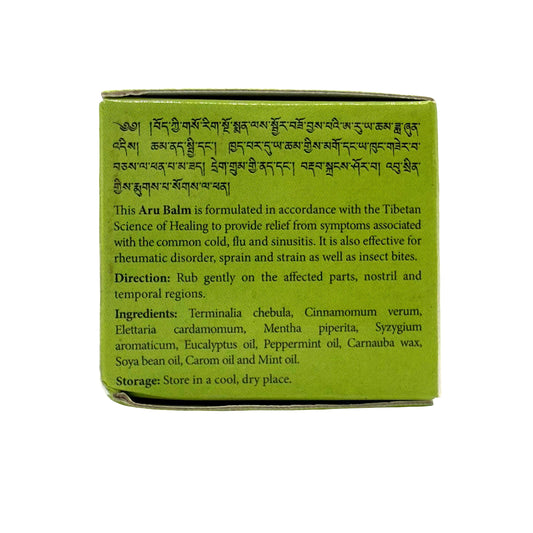 ༄༅། །བོད་ཀྱི་གསོ་རིག་སྔོ་སྨན་ལས་སྦྱོར་བཟོ་བྱས་པའི་ཨ་རུ་ཡ་ཆམ་རླྷ་ཞུན་
འདིས། ཆམ་ནད་སྤྱི་དང་། ཁྱད་པར་དུ་ཡ་ཆམ་གྱིས་མགོ་དང་ཡ་ཁུང་གཟེར་བ་
བཅས་ལ་ཕན་པ་མ་ཟད། དྲེག་གྲུམ་གྱི་ནད་དང་། བརྡབ་སྐྲངས་ཤོར་བ། འབུ་སྲིན་
གྱིས་རྨུགས་པ་སོགས་ལ་ཕན།
This Aru Balm is formulated in accordance with the Tibetan
Science of Healing to provide relief from symptoms associated
with the common cold, flu and sinusitis. It is also effective for
rheumatic disorder, sprain and strain as well as insect bites.
Direction: Rub gently on the affected parts, nostril and
temporal regions.
Ingredients: Terminalia chebula, Cinnamomum verum,
Elettaria cardamomum, Mentha piperita, Syzygium
aromaticum, Eucalyptus oil, Peppermint oil, Carnauba wax,
Soya bean oil, Carom oil and Mint oil.
Storage: Store in a cool, dry place.